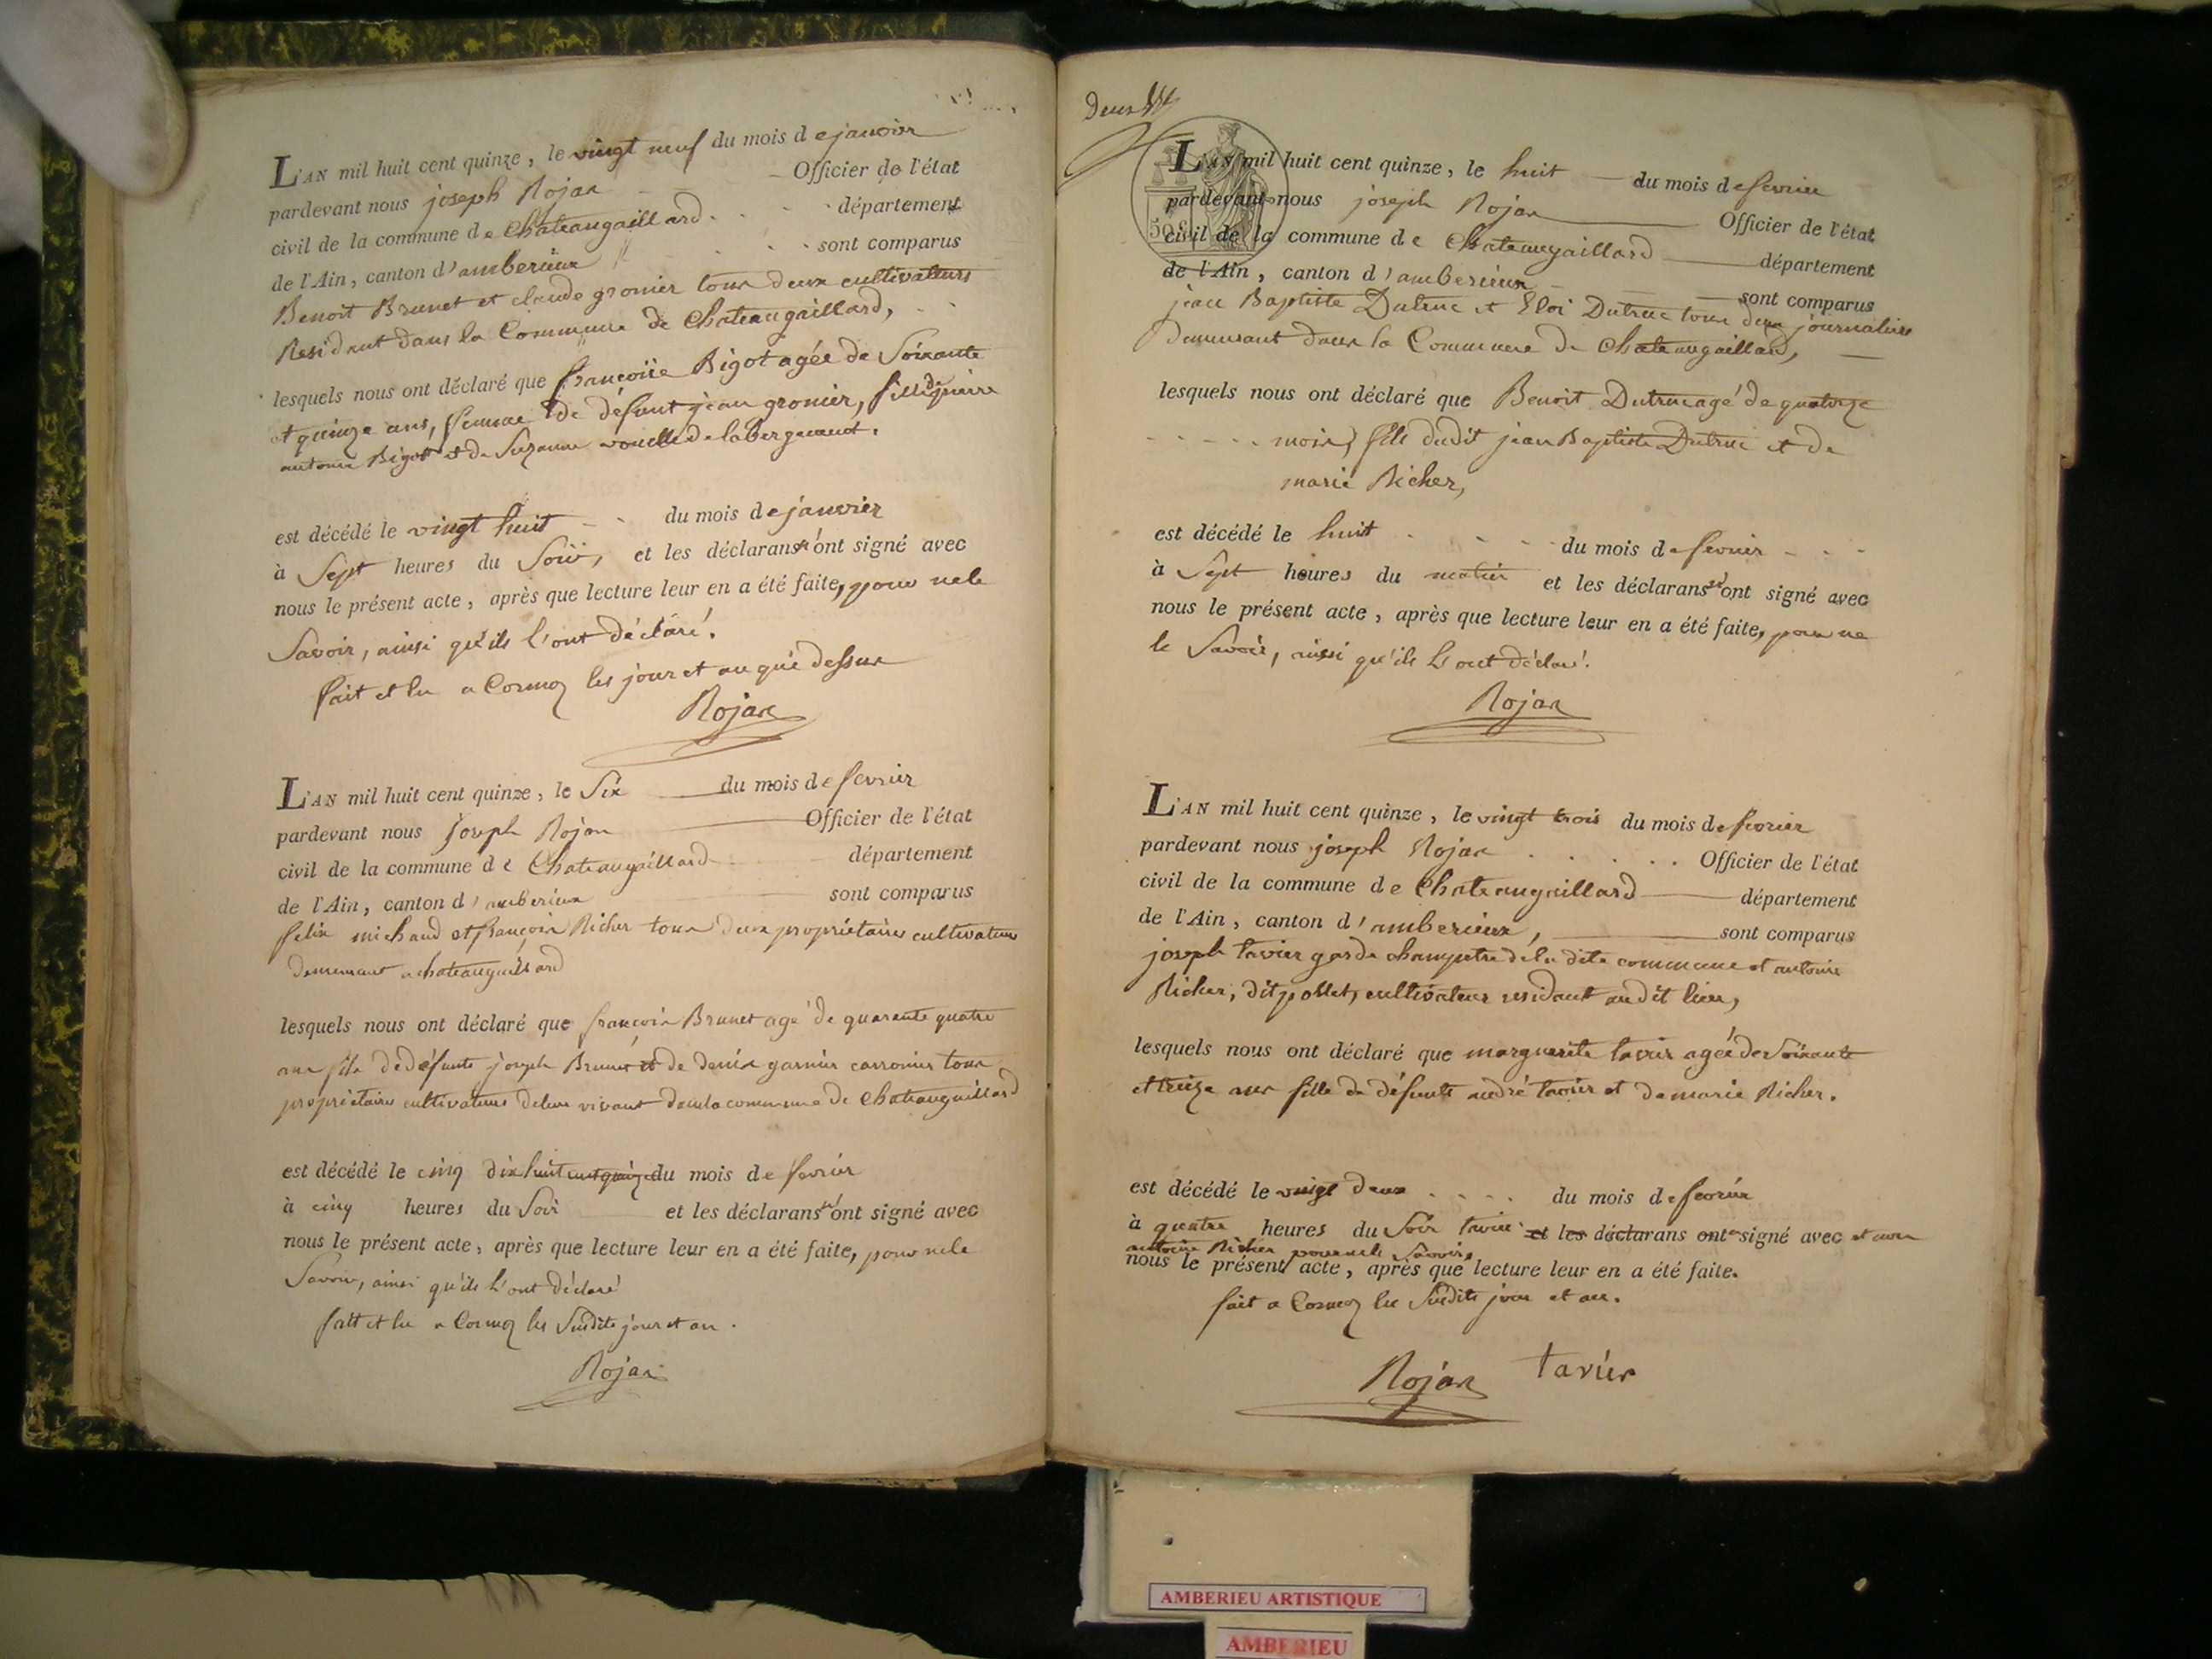 L'AN mil huit cent quinze, le vingt neuf du mois de janvier
pardevant nous joseph Rojan Officier de l'état
civil de la commune de Chateaugaillard département
de l'Ain, canton d'amberieux sont comparus
Benoit Brunet et claude gronier tous deux cultivateurs
Residant dans la Commune de Chateaugaillard,
lesquels nous ont déclaré que françoise Bigot agée de Soixante
et quinze ans, femme de défunt jean gronier, fille de
antoine Bigot et de Suzanne
est décédé le vingt huit du mois de janvier
à Sept heures du Soir, et les déclarans n'ont signé avec
nous le présent acte, après que lecture leur en a été faite, pour ne le
Savoir, ainsi qu'ils l'ont déclaré.
fait et lu a Cormoz les jour et an que dessus
Rojan
L'AN mil huit cent quinze, le Six du mois de fevrier
pardevant nous Joseph Rojan Officier de l'état
civil de la commune de Chateaugaillard département
de l'Ain, canton d'amberieux sont comparus
felix michaud et françois Richer tous deux propriétaires cultivateurs
demeurant a chateaugaillard
lesquels nous ont déclaré que françois Brunet agé de quarante quatre
ans fils de défunts joseph Brunet et de denise garnier carronier tous
propriétaires cultivateurs de leur vivant dans la commune de Chateaugaillard
est décédé le cinq dix huit cent quinze du mois de fevrier
à cinq heures du Soir et les déclarans n'ont signé avec
nous le présent acte, après que lecture leur en a été faite, pour ne le
Savoir, ainsi qu'ils l'ont déclaré
fait et lu a Cormoz les Susdits jour et an.
Rojan
Deux
L'AN mil huit cent quinze, le huit du mois de fevrier
pardevant nous joseph Rojan Officier de l'état
civil de la commune de Chateaugaillard département
de l'Ain, canton d'amberieux sont comparus
jean Baptiste Dutruc et Eloi Dutruc tous deux journaliers
Demeurant dans la Commune de Chateaugaillard,
lesquels nous ont déclaré que Benoit Dutruc agé de quatorze
mois, fils dudit jean Baptiste Dutruc et de
marie Richer,
est décédé le huit du mois de fevrier
à Sept heures du matin et les déclarans n'ont signé avec
nous le présent acte, après que lecture leur en a été faite, pour ne
le Savoir, ainsi qu'ils l'ont déclaré.
Rojan
L'AN mil huit cent quinze, le vingt trois du mois de fevrier
pardevant nous joseph Rojan Officier de l'état
civil de la commune de Chateaugaillard département
de l'Ain, canton d'amberieux, sont comparus
joseph tavier garde champetre de la dite commune et antoine
Richer, dit pollet, cultivateur residant audit lieu,
lesquels nous ont déclaré que marguerite tavier agée de Soixante
et treize ans fille de défunts andré tavier et de marie Richer.
est décédé le vingt deux du mois de fevrier
à quatre heures du Soir tavier et les déclarans ont signé avec et non
antoine Richer pour ne le Savoir,
nous le présent acte, après que lecture leur en a été faite.
fait a Cormoz les Susdits jour et an.
Rojan tavier
AMBERIEU ARTISTIQUE
AMBERIEU